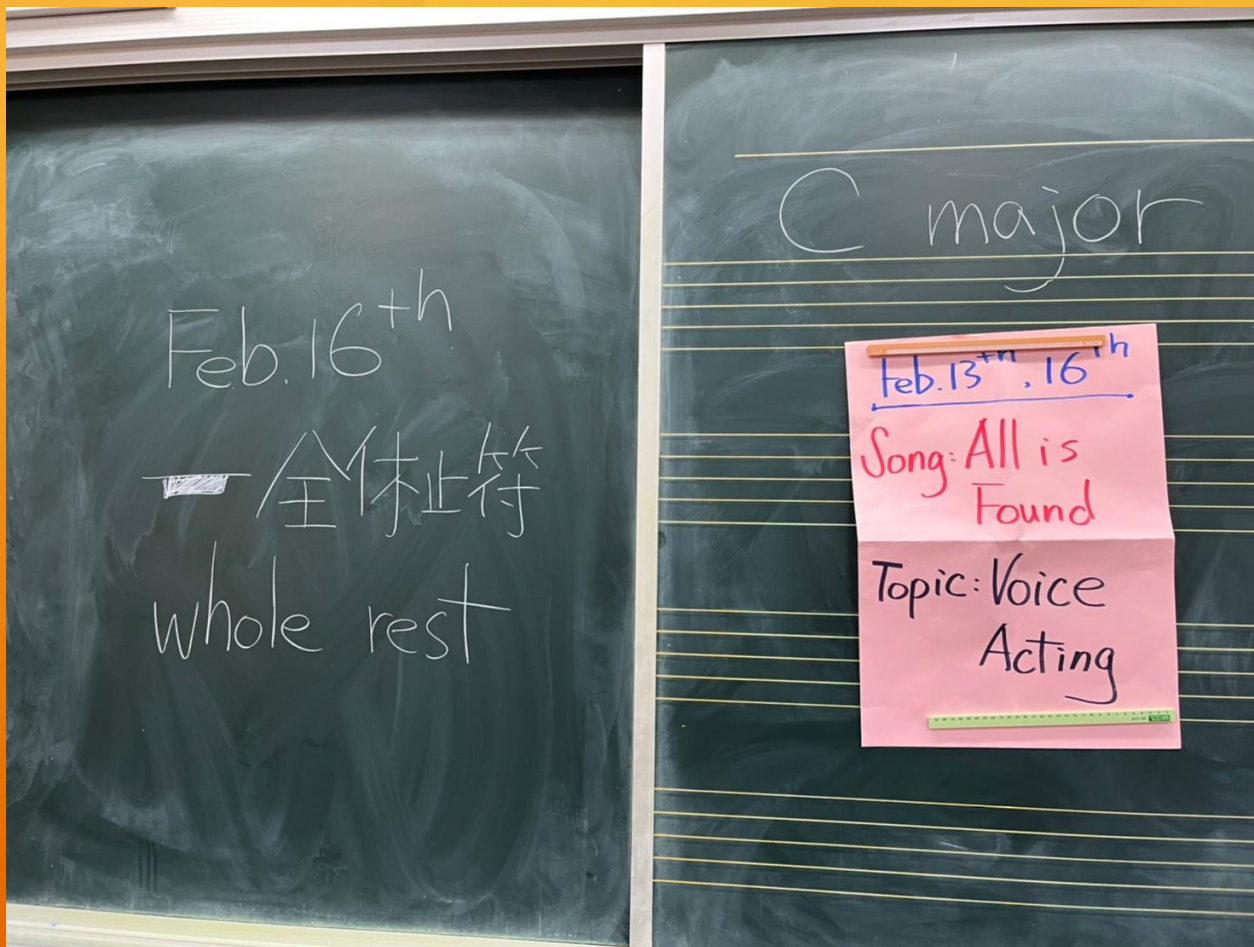 Feb. 16th
全休止符
whole rest
C major
Feb. 13th. 16th
Song: All is
Found
Topic: Voice
Acting